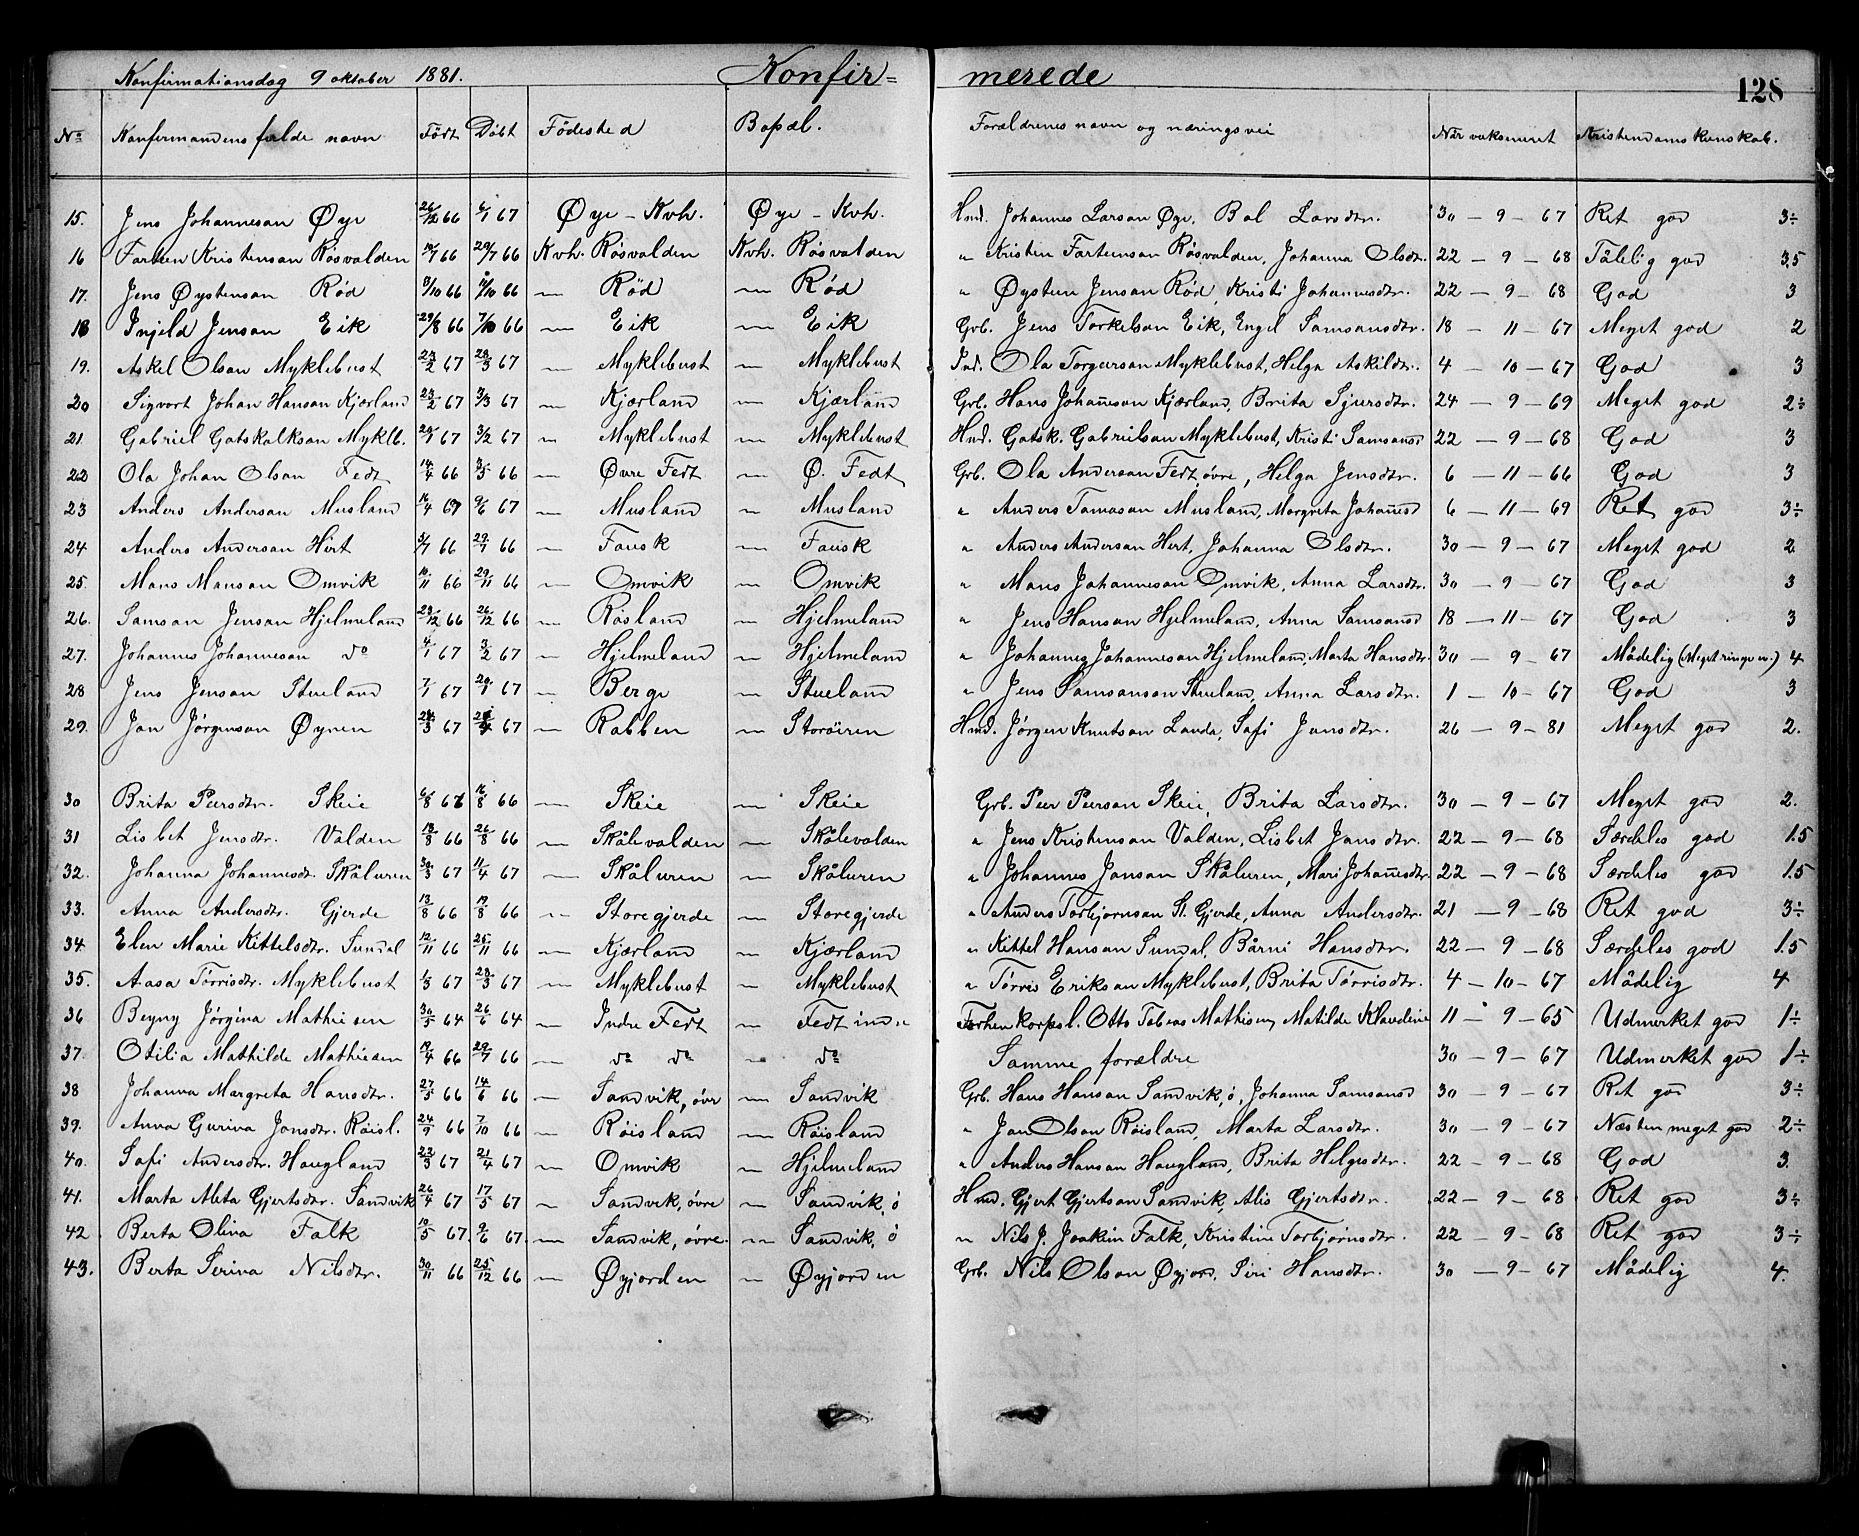 Konfirmationsdag 9 oktober 1881. Konfir= merede 128
No Konfirmandens fulde navn Født Døbt Fødested Bopæl. Forældrenes navn og næringsvei Når vaksineret Kristendomskunskab.
15. Jens Johanneson Øye 26/12 66 6/1 67 Øye - Kvh. Øye - Kvh. Hmd. Johannes Larson Øye, Bol Larsdtr. 30 - 9 - 67 Ret god 3÷
16 Farteen Kristenson Røsvalden 19/7 66 29/7 66 Kvh. Røsvalden Kvh. Røsvalden " Kristen Farteinson Røsvalden, Johanna Olsdtr. 22 - 9 - 68 Tålelig god 3.5
17. Jens Øystenson Rød /10 66 /10 66 — Rød — Rød " Øysten Jenson Rød, Kristi Johannesdtr. 22 - 9 - 68 God 3
18 Injeld Jenson Eik 29/8 66 7/10 66 — Eik — Eik Grb. Jens Torkelson Eik, Engel Samsonsdtr. 18 - 11 - 67 Meget god 2
19. Askel Olson Myklebust 22/2 67 28/3 67 — Myklebust — Myklebust Ind. Ola Torgerson Myklebust, Helga Askildtr. 4 - 10 - 67 God 3
20 Sigvort Johan Hanson Kjærland 23/2 67 3/3 67 — Kjærland — Kjærland Grb. Hans Johaneson Kjærland, Brita Sjursdtr. 24 - 9 - 69 Meget god 2÷
21. Gabriel Gotskalkson Myklb. 29/1 67 3/2 67 — Myklebust — Myklebust Hmd. Gotsk. Gabrielson Myklebust, Kristi Samsonsd 22 - 9 - 68 God 3
22 Ola Johan Olson Fedt 14/4 66 3/5 66 — Øvre Fedt — Ø. Fedt Grb. Ola Anderson Fedt, øvre, Helga Jensdtr. 6 - 11 - 66 God 3
23 Anders Anderson Musland 16/4 67 9/6 67 — Musland — Musland " Anders Tomason Musland, Margreta Johanesd 6 - 11 - 69 Ret god 3÷
24. Anders Anderson Hirt 3/7 66 29/7 66 — Fausk — Fausk " Anders Anderson Hirt, Johanna Olsdtr. 30 - 9 - 67 Meget god 2
25. Mons Monson Omvik 10/11 66 29/11 66 — Omvik — Omvik " Mons Johanneson Omvik, Anna Larsdtr. 30 - 9 - 67 God 3
26. Samson Jenson Hjelmeland 23/12 66 26/12 66 — Røsland — Hjelmeland " Jens Hanson Hjelmeland, Anna Samsonsd 18 - 11 - 67 God 3
27. Johannes Johanneson do 4/1 67 3/2 67 — Hjelmeland — Hjelmeland " Johannes Johanneson Hjelmeland, Marta Hansdtr. 30 - 9 - 67 Mådelig (Meget ringe ev.) 4
28 Jens Jenson Stueland 7/1 67 20/1 67 — Berge — Stueland " Jens Samsonson Stueland, Anna Larsdtr. 1 - 10 - 67 God 3
29. Jon Jørgenson Øynen /3 67 67 — Rabben — Storøiren Hmd. Jørgen Knutson Landa, Sofi Jonsdtr. 26 - 9 - 81 Meget god 2.
30 Brita Peersdtr. Skeie 6/8 66 16/8 66 — Skeie — Skeie Grb. Peer Peerson Skeie, Brita Larsdtr. 30 - 9 - 67 Meget god 2.
31 Lisbet Jensdtr. Valden 13/8 66 26/8 66 — Skålevalden — Skålevalden " Jens Kristenson Valden, Lisbet Jonsdtr. 22 - 9 - 68 Særdeles god 1.5
32. Johanna Johannesdt. Skåluren 30/3 67 11/4 67 — Skåluren — Skåluren " Johannes Jonson Skåluren, Mari Johanesdtr. 22 - 9 - 68 Særdeles god 1.5
33. Anna Andersdtr. Gjerde 13/8 66 19/8 66 — Storegjerde — Storegjerde " Anders Torbjornson St. Gjerde, Anna Andersdtr. 21 - 9 - 68 Ret god 3÷
34 Elen Marie Kittelsdtr. Sundal 12/11 66 25/11 66 — Kjærland — Kjærland " Kittel Hanson Sundal, Bårni Hansdtr. 22 - 9 - 68 Særdeles god 1.5
35. Aasa Tørrisdtr. Myklebust 1/3 67 28/3 67 — Myklebust — Myklebust " Tørris Erikson Myklebust, Brita Tørrisdtr. 4 - 10 - 67 Mådelig 4
36 Beyny Jørgina Mathiesen 30/5 64 26/6 64 — Indre Fedt — Fedt ind. Forhen korpsl. Otto Tobias Mathisen, Matilde Klavdine 11 - 9 - 65 Udmerket god 1÷
37. Otilia Mathilde Mathiesen 19/4 66 29/7 66 — do do — do Samme forældre 30 - 9 - 67 Udmerket god 1÷
38 Johanna Margreta Hansdtr. 27/5 66 14/6 66 — Sandvik, øvr — Sandvik Grb. Hans Hanson Sandvik, ø, Johanna Samsonsd 30 - 9 - 67 Ret god 3÷
39. Anna Gurina Jonsdtr. Røisl. 24/9 66 7/10 66 — Røisland — Røisland " Jon Olson Røisland, Marta Larsdtr. 30 - 9 - 67 Næsten meget god 2÷
40. Sofi Andersdtr. Haugland 22/3 67 21/4 67 — Omvik — Hjelmeland " Anders Hanson Haugland, Brita Helgesdtr. 22 - 9 - 68 God 3.
41. Marta Meta Gjertsdtr. Sandvik 26/4 67 17/5 67 — Sandvik, øvre — Sandvik, ø Hmd. Gjert Gjertson Sandvik, Alis Gjertsdtr. 22 - 9 - 68 Ret god 3÷
42 Berta Olina Falk 19/5 67. 9/6 67. — Sandvik, øvre. — Sandvik, ø " Nils J. Joakim Falk, Kristine Torbjørnsdtr. 22 - 9 - 68 Ret god 3÷
43. Berta Serina Nilsdtr. 30/11 66 25/12 66 — Øyjorden — Øyjorden Grb. Nils Olson Øyjord, Siri Hansdtr. 30 - 9 - 67 Mådelig 4.